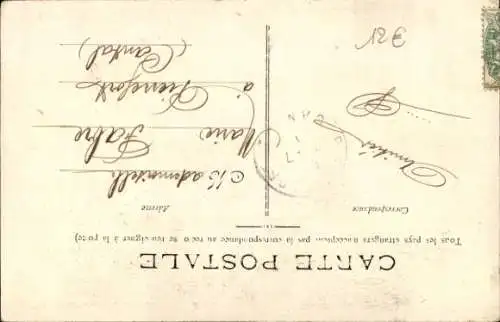 CARTE POSTALE
Tous les pays étrangers n'acceptent pas la correspondance au recto (Se renseigner à la poste)
Correspondance
Amitiés
Adresse
Mademoiselle
Marie Fabre
à Pierrefort
(Cantal)